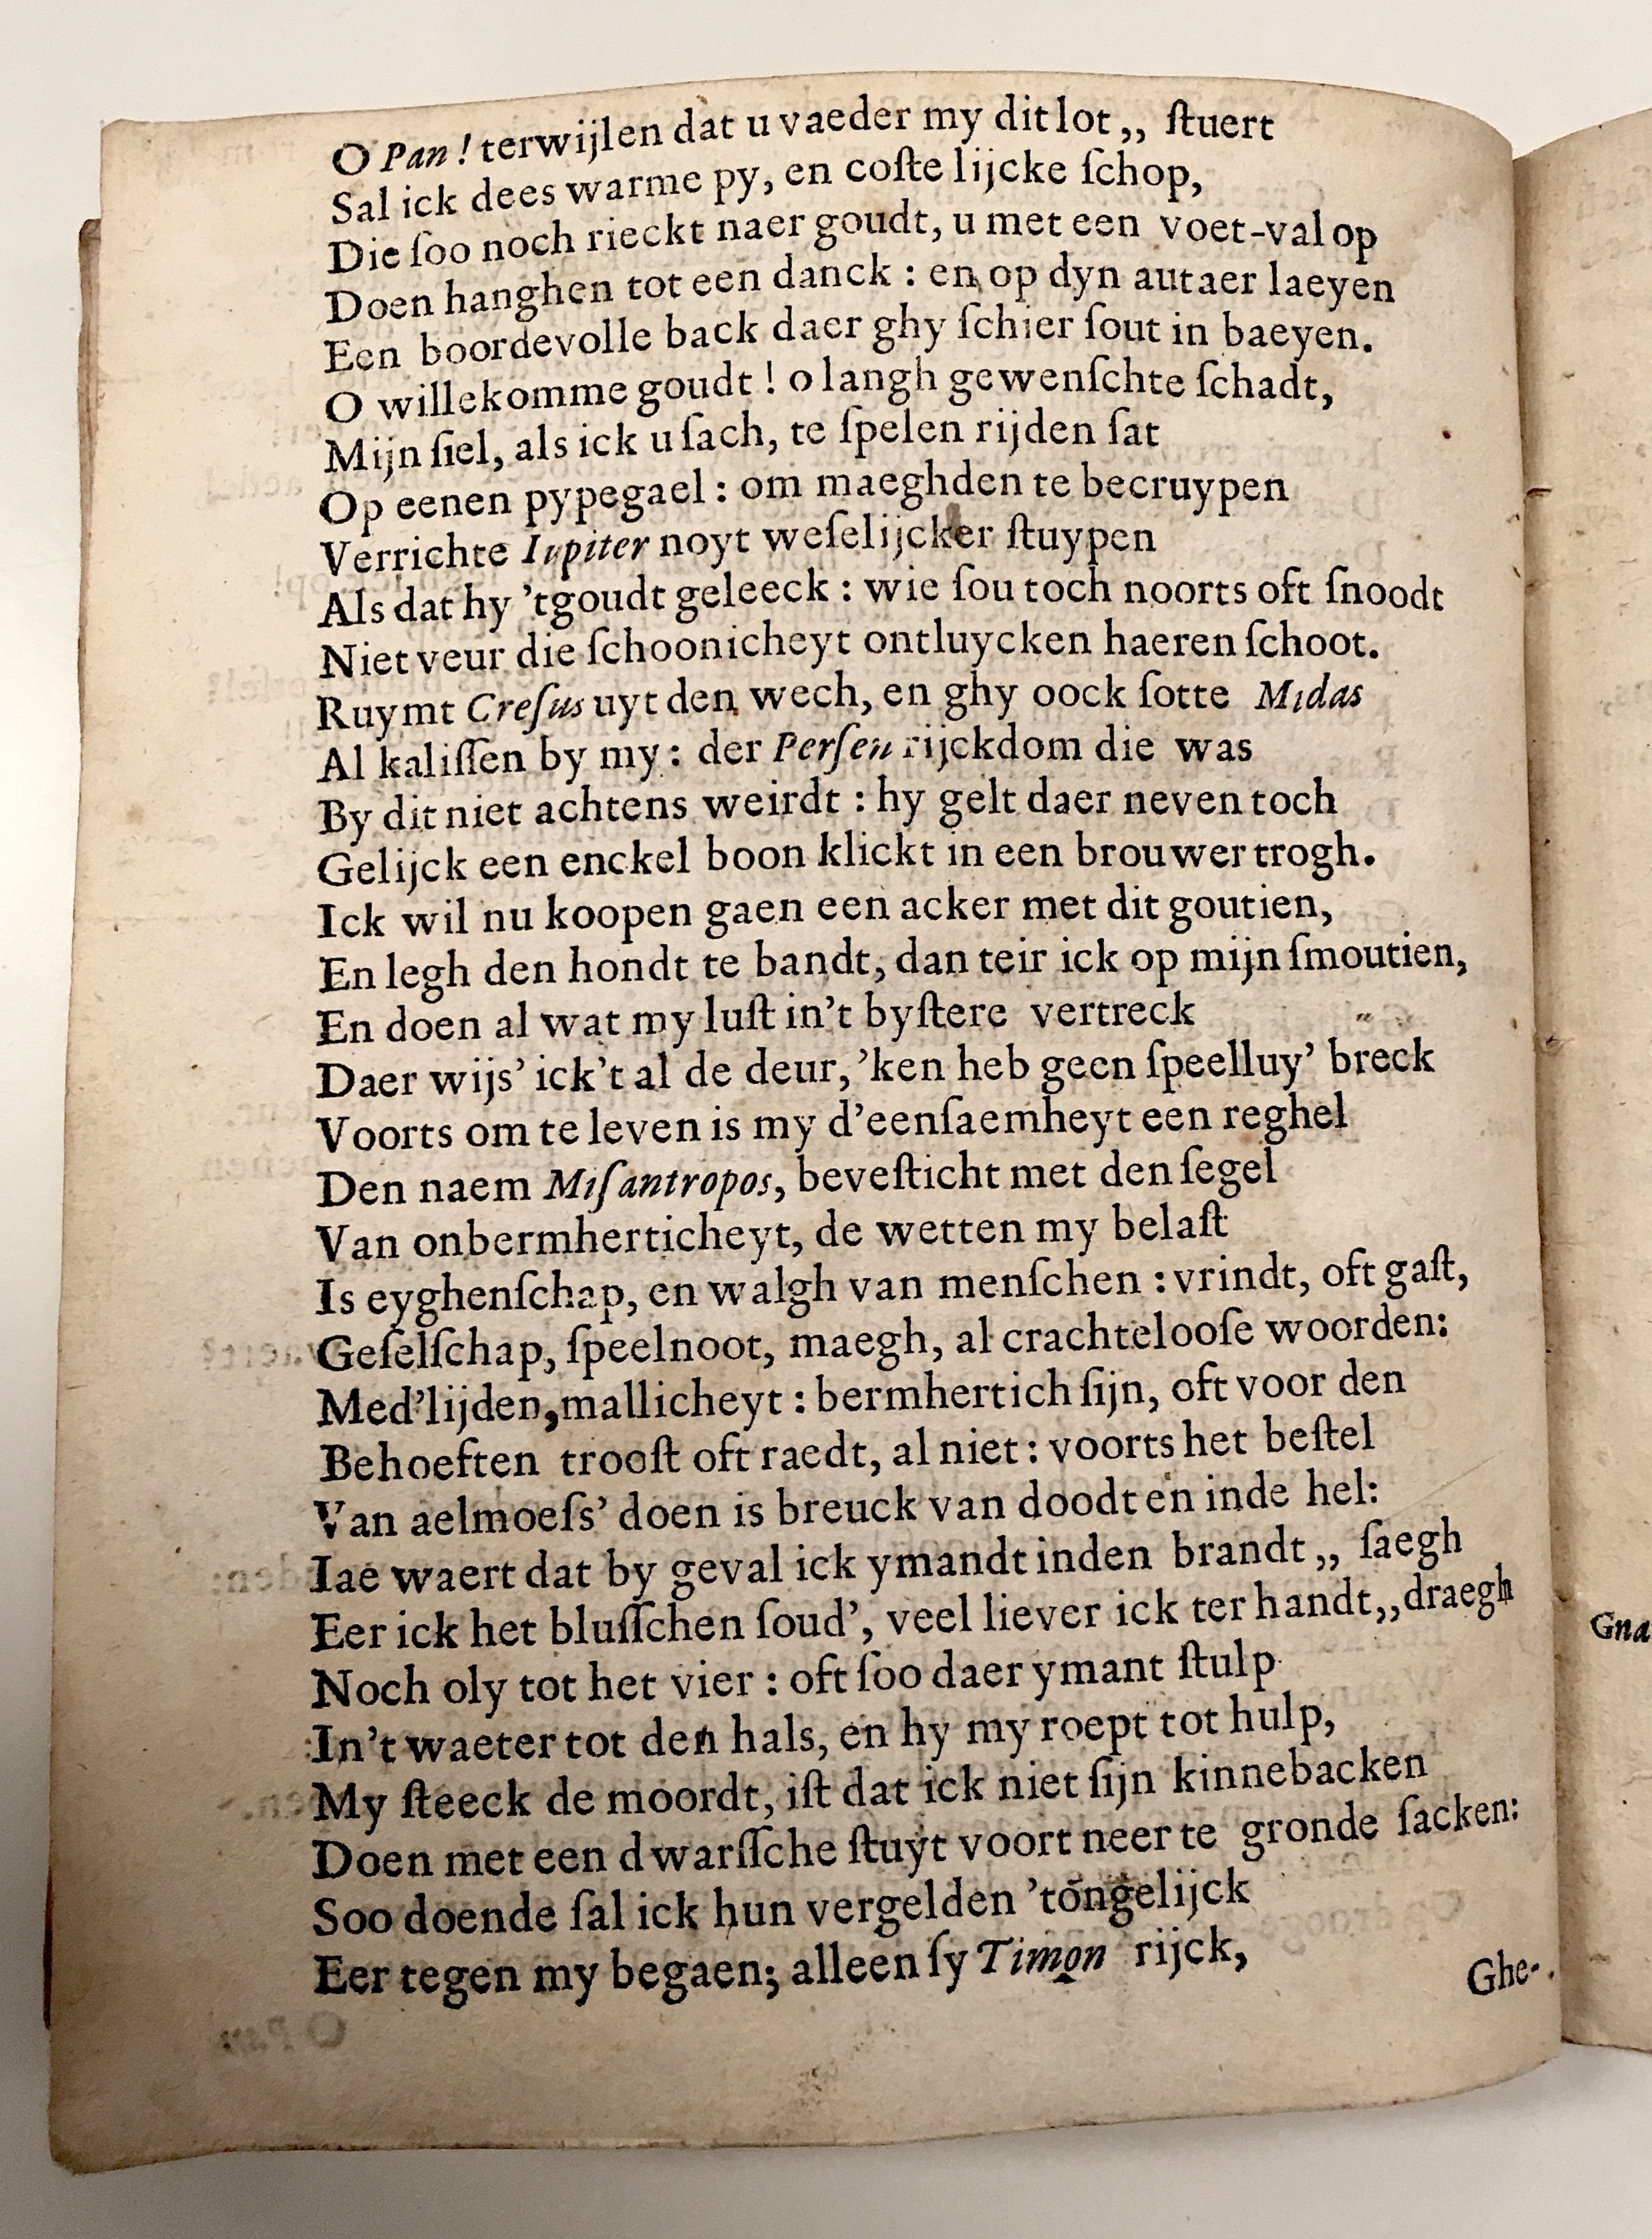 O Pan ! terwijlen dat u vaeder my dit lot ,, ſtuert
Sal ick dees warme py, en coſte lijcke ſchop,
Die ſoo noch rieckt naer goudt, u met een voet-val op
Doen hanghen tot een danck : en op dyn autaer laeyen
Een boordevolle back daer ghy ſchier ſout in baeyen.
O willekomme goudt ! o langh gewenſchte ſchadt,
Mijn ſiel, als ick u ſach, te ſpelen rijden ſat
Op eenen pypegael : om maeghden te becruypen
Verrichte Iupiter noyt weſelijcker ſtuypen
Als dat hy 'tgoudt geleeck : wie ſou toch noorts oft ſnoodt
Niet veur die ſchoonicheyt ontluycken haeren ſchoot.
Ruymt Creſus uyt den wech, en ghy oock ſotte Midas
Al kaliſſen by my : der Perſen rijckdom die was
By dit niet achtens weirdt : hy gelt daer neven toch
Gelijck een enckel boon klickt in een brouwer trogh.
Ick wil nu koopen gaen een acker met dit goutien,
En legh den hondt te bandt, dan teir ick op mijn ſmoutien,
En doen al wat my luſt in't byſtere vertreck
Daer wijs' ick't al de deur, 'ken heb geen ſpeelluy' breck
Voorts om te leven is my d'eenſaemheyt een reghel
Den naem Miſantropos, beveſticht met den ſegel
Van onbermherticheyt, de wetten my belaſt
Is eyghenſchap, en walgh van menſchen : vrindt, oft gaſt,
Geſelſchap, ſpeelnoot, maegh, al crachtelooſe woorden:
Med'lijden, mallicheyt : bermhertich ſijn, oft voor den
Behoeften trooſt oft raedt, al niet : voorts het beſtel
Van aelmoeſs' doen is breuck van doodt en inde hel:
Iae waert dat by geval ick ymandt inden brandt ,, ſaegh
Eer ick het bluſſchen ſoud', veel liever ick ter handt,, draegh
Noch oly tot het vier : oft ſoo daer ymant ſtulp
In't waeter tot den hals, en hy my roept tot hulp,
My ſteeck de moordt, iſt dat ick niet ſijn kinnebacken
Doen met een dwarſſche ſtuyt voort neer te gronde ſacken:
Soo doende ſal ick hun vergelden 'tongelijck
Eer tegen my begaen; alleen ſy Timon rijck,
Ghe-
Gna